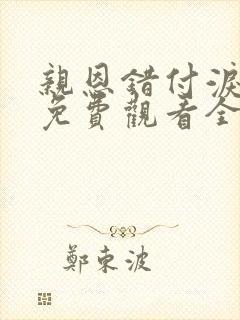 親恩錯付淚
免費觀看全
鄭東波